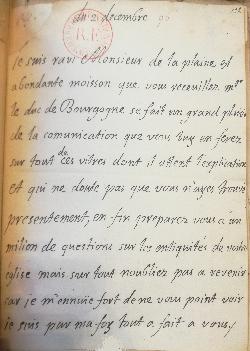 du 2 decembre 96
R.F.
Je suis ravi Monsieur de la plaine et
abondante moisson que vous recueillez mgr
le duc de Bourgogne se fait un grand plaisir
de la comunication que vous luy en ferez
sur tout de ces vitres dont il attent l'explication
et qui ne doute pas que vous n'ayez trouvé
presentement, en fin preparez vous a un
milion de questions sur les antiquités de vostre
eglise mais sur tout noubliez pas a revenir
car je m'ennuie fort de ne vous point voir
je suis par ma foy tout a fait a vous